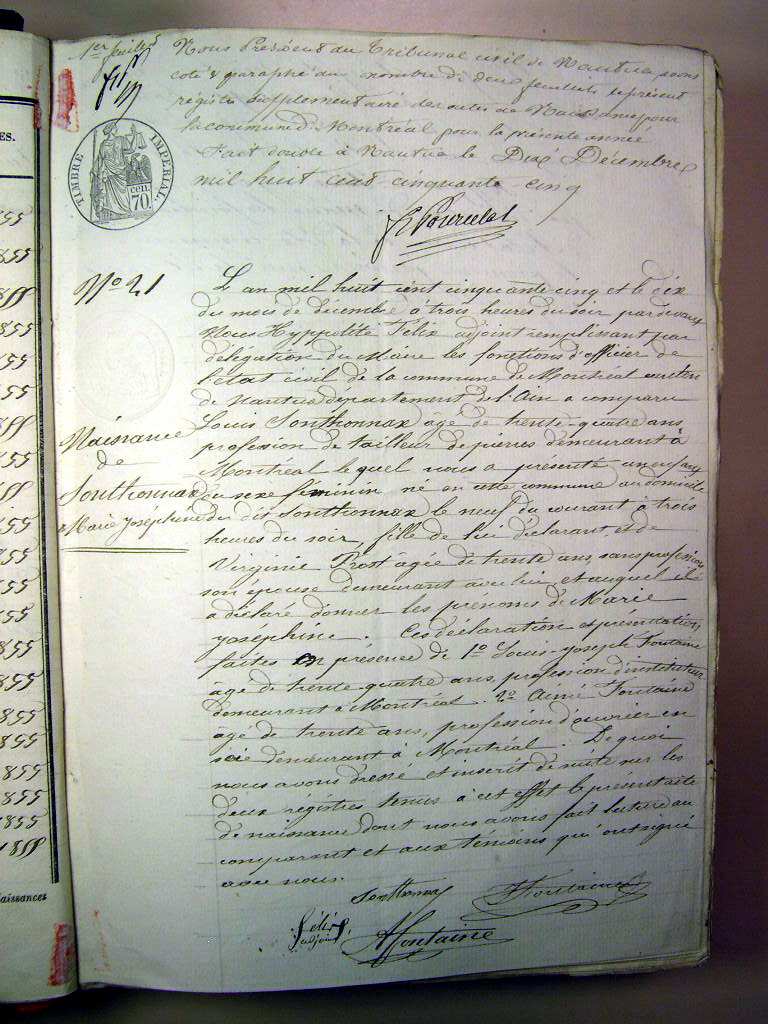 ES.
855
855
1855
855
855
855
855
855
855
855
855
855
855
855
855
1855
aissances
1er feuillet
TIMBRE IMPERIAL.
cen. 70.
Nous Président du Tribunal civil de Nantua avons
coté & paraphé au nombre de deux feuillets le présent
registre supplémentaire des actes de Naissance pour
la commune de Montréal pour la présente année
Fait double à Nantua le Dix Décembre
mil huit cent cinquante cinq
No 21
Naissance
de
Sonthonnax
Marie Joséphine
L'an mil huit cent cinquante cinq et le dix
du mois de décembre à trois heures du soir, pardevant
Nous Hyppolite Félix adjoint remplissant par
délégation du Maire les fonctions d'officier de
l'état civil de la commune de Montréal canton
de Nantua département de l'Ain a comparu
Louis Sonthonnax âgé de trente-quatre ans
profession de tailleur de pierres demeurant à
Montréal lequel nous a présenté un enfant
du sexe féminin né en cette commune au domicile
du dit Sonthonnax le neuf du courant à trois
heures du soir, fille de lui déclarant, et de
Virginie Prost âgée de trente ans, sans profession
son épouse demeurant avec lui, et auquel il
a déclaré donner les prénoms de Marie
Joséphine. Ces déclaration et présentation
faites en présence de 1o Louis-Joseph Fontaine
âgé de trente quatre ans, profession d'instituteur
demeurant à Montréal. 2o Aimé Fontaine
âgé de trente ans, profession d'ouvrier en
soie demeurant à Montréal. De quoi
nous avons dressé et inscrit de suite sur les
deux régistres tenus à cet effet le présent acte
de naissance dont nous avons fait lecture au
comparant et aux témoins qui ont signé
avec nous.
Sonthonnax
Fontaine
Félix
adjoint
A Fontaine